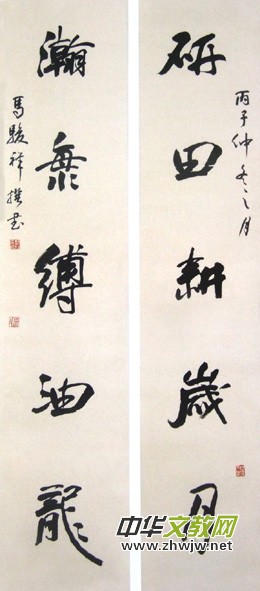 丙子仲冬之月
研田耕歲月
瀚海縛油龍
馬駿祥撰書
中华文教网
www.zhwjw.net